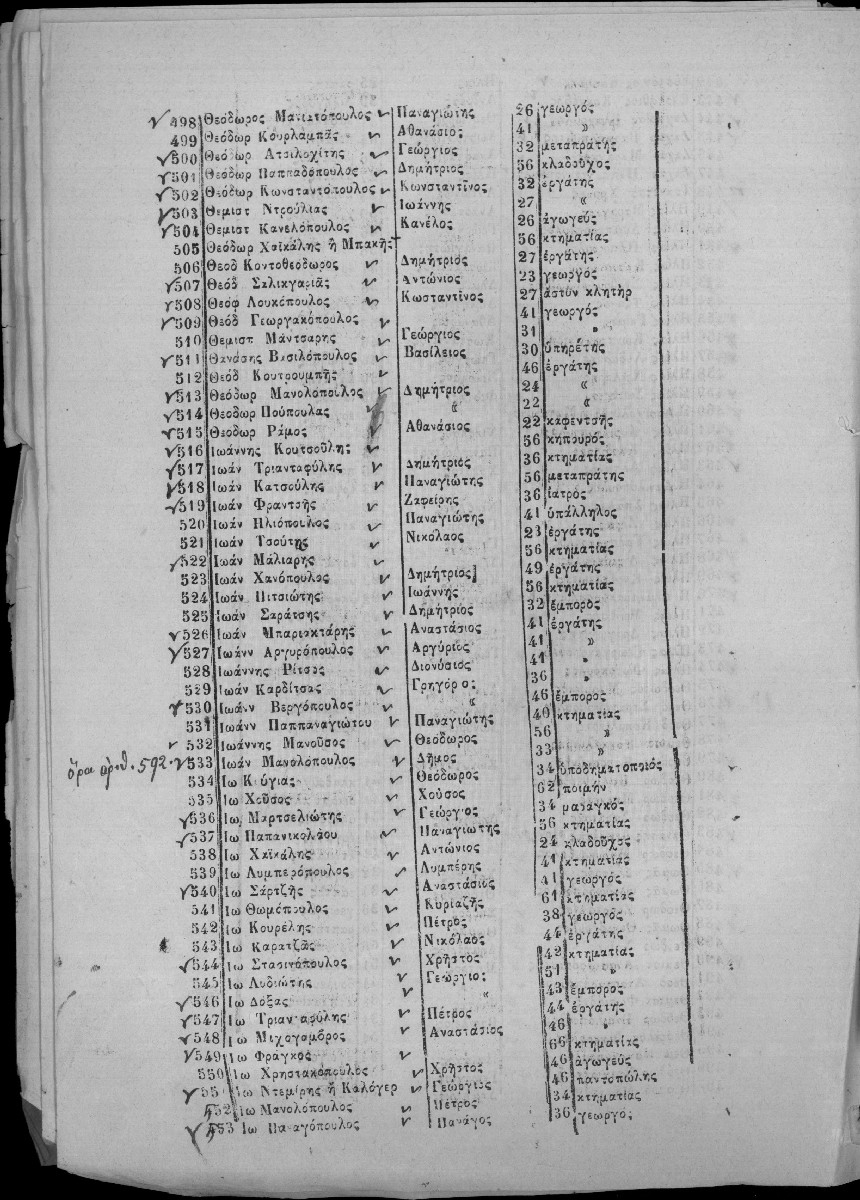 498 Θεόδωρος Μανιατόπουλος Παναγιώτης 26 γεωργός
499 Θεόδωρ Κουρλαμπᾶς Αθανάσιος 41 »
500 Θεόδωρ Ατσιλοχίτης Γεώργιος 32 μεταπράτης
501 Θεόδωρ Παππαδόπουλος Δημήτριος 56 κλαδοῦχος
502 Θεόδωρ Κωνσταντόπουλος Κωνσταντῖνος 32 ἐργάτης
503 Θεμιστ Ντρούλιας Ἰωάννης 27 «
504 Θεμιστ Κανελόπουλος Κανέλος 26 ἀγωγεύς
505 Θεόδωρ Χαϊκάλης ἤ Μπακῆς 56 κτηματίας
506 Θεοδ Κοντοθεόδωρος Δημήτριος 27 ἐργάτης
507 Θεόδ Σελικγαριᾶς Αντώνιος 23 γεωργός
508 Θεόφ Λουκόπουλος Κωσταντῖνος 27 ἀστυν κλητὴρ
509 Θεόδ Γεωργακόπουλος 41 γεωργός
510 Θεμιστ Μάντσαρης Γεώργιος 31 »
511 Θανάσης Βασιλόπουλος Βασίλειος 30 ὑπηρέτης
512 Θεόδ Κουτρουμπῆς 46 ἐργάτης
513 Θεόδωρ Μανολόπουλος Δημήτριος 24 «
514 Θεόδωρ Πούπουλας « 22 «
515 Θεόδωρ Ράμος Αθανάσιος 22 καφεντσῆς
516 Ιωάννης Κουτσοῦλης 56 κηπουρός
517 Ιωάν Τριανταφύλης Δημήτριος 36 κτηματίας
518 Ιωάν Κατσούλης Παναγιώτης 56 μεταπράτης
519 Ιωάν Φραντσῆς Ζαφείρης 36 ἰατρός
520 Ιωάν Ηλιόπουλος Παναγιώτης 41 ὑπάλληλος
521 Ιωάν Τσούτης Νικόλαος 23 ἐργάτης
522 Ιωάν Μάλιαρης 56 κτηματίας
523 Ιωάν Χανόπουλος Δημήτριος] 49 ἐργάτης
524 Ιωάν Πιτσιώτης Ιωάννης 56 κτηματίας
525 Ιωάν Σαράτσης Δημήτριος 32 ἔμπορος
526 Ιωάν Μπαριακτάρης Αναστάσιος 41 ἐργάτης
527 Ιωάνν Αργυρόπουλος Αργύριος 41 »
528 Ιωάννης Ρίτσος Διονύσιος 41 »
529 Ιωάν Καρδίτσας Γρηγόριος 36 »
530 Ιωάνν Βεργόπουλος « 46 ἔμπορος
531 Ιωάνν Παππαναγιώτου Παναγιώτης 40 κτηματίας
532 Ιωάννης Μανοῦσος Θεόδωρος 56 »
ὅρα ἀριθ. 592. 533 Ιωάν Μανολόπουλος Δῆμος 33 »
534 Ιω Κιόγιας Θεόδωρος 34 ὑποδηματοποιός
535 Ιω Χοῦσος Χοῦσος 62 ποιμήν
536 Ιω Μαρτσελιώτης Γεώργιος 34 μαραγκός
537 Ιω Παπανικολάου Παναγιώτης 56 κτηματίας
538 Ιω Χαϊκάλης Αντώνιος 24 κλαδοῦχος
539 Ιω Λυμπερόπουλος Λυμπέρης 41 κτηματίας
540 Ιω Σάρτζῆς Αναστάσιος 41 γεωργός
541 Ιω Θωμόπουλος Κυριαζῆς 61 κτηματίας
542 Ιω Κουρέλης Πέτρος 38 γεωργός
543 Ιω Καρατζᾶς Νικόλαος 44 ἐργάτης
544 Ιω Στασινόπουλος Χρῆστος 42 κτηματίας
545 Ιω Λυδιώτης Γεώργιος 51 »
546 Ιω Δόξας « 43 ἔμπορος
547 Ιω Τριανταφύλης Πέτρος 44 ἐργάτης
548 Ιω Μιχογαμβρος Αναστάσιος 46 »
549 Ιω Φράγκος 66 κτηματίας
550 Ιω Χρηστακόπουλος Χρῆστος 46 ἀγωγεύς
55 Ιω Ντεμίρης ἤ Καλόγερ Γεώργιος 46 παντοπώλης
552 Ιω Μανολόπουλος Πέτρος 34 κτηματίας
553 Ιω Παναγόπουλος Πανάγος 36 γεωργός